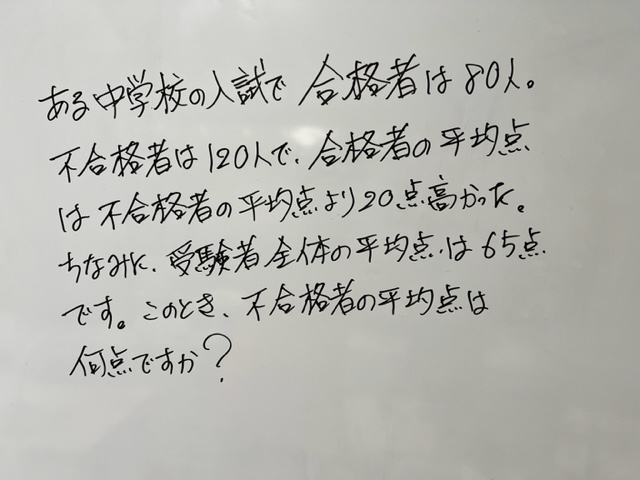 ある中学校の入試で 合格者は80人。
不合格者は120人で、合格者の平均点
は不合格者の平均点より20点高かった。
ちなみに、受験者全体の平均点は65点
です。このとき、不合格者の平均点は
何点ですか?